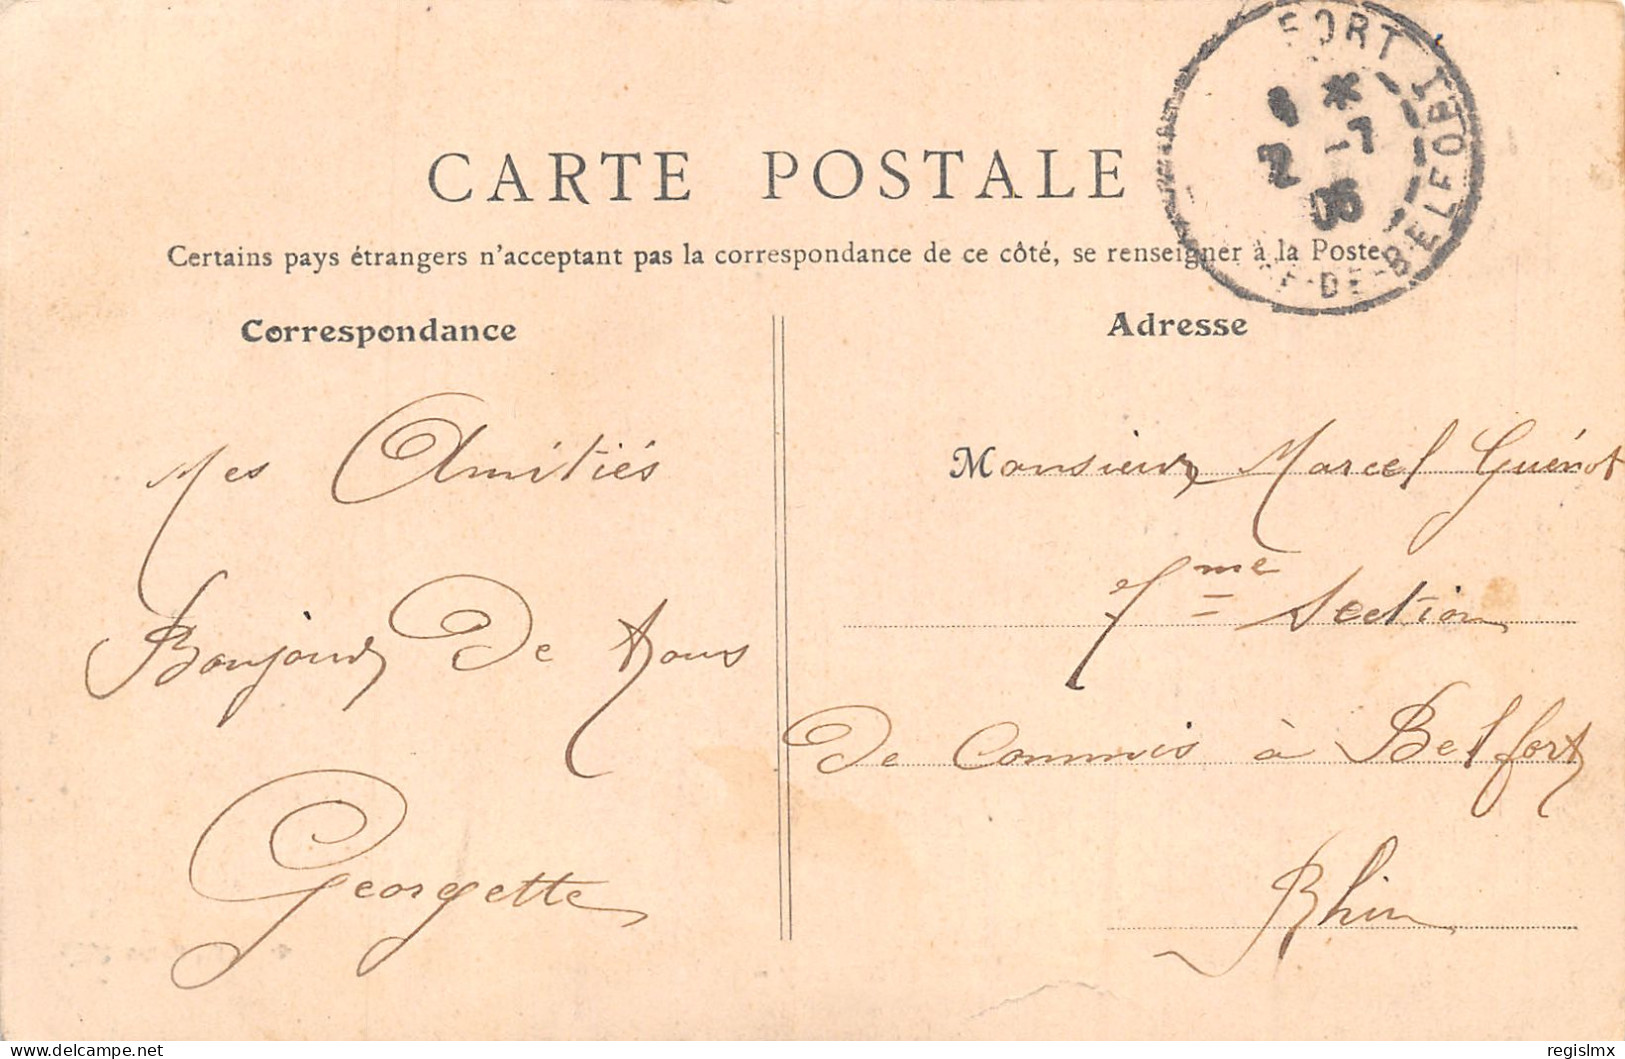 CARTE POSTALE
Certains pays étrangers n'acceptant pas la correspondance de ce côté, se renseigner à la Poste
Correspondance
Mes Amitiés
Bonjour De tous
Georgette
Adresse
Monsieur Marcel Guénot
7me Section
De Commis à Belfort
Rhin
FORT
-7
06
-DE-BELFORT
regislmx